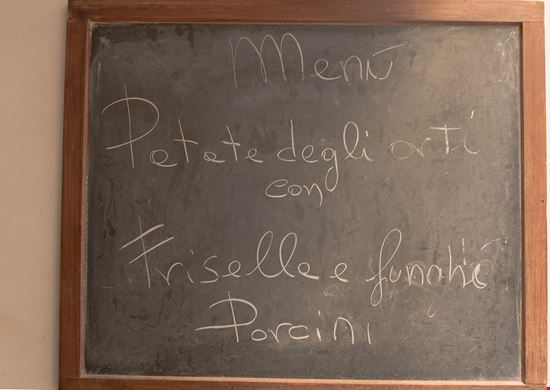 Menù
Patate degli orti
con
Friselle e funghi
Porcini